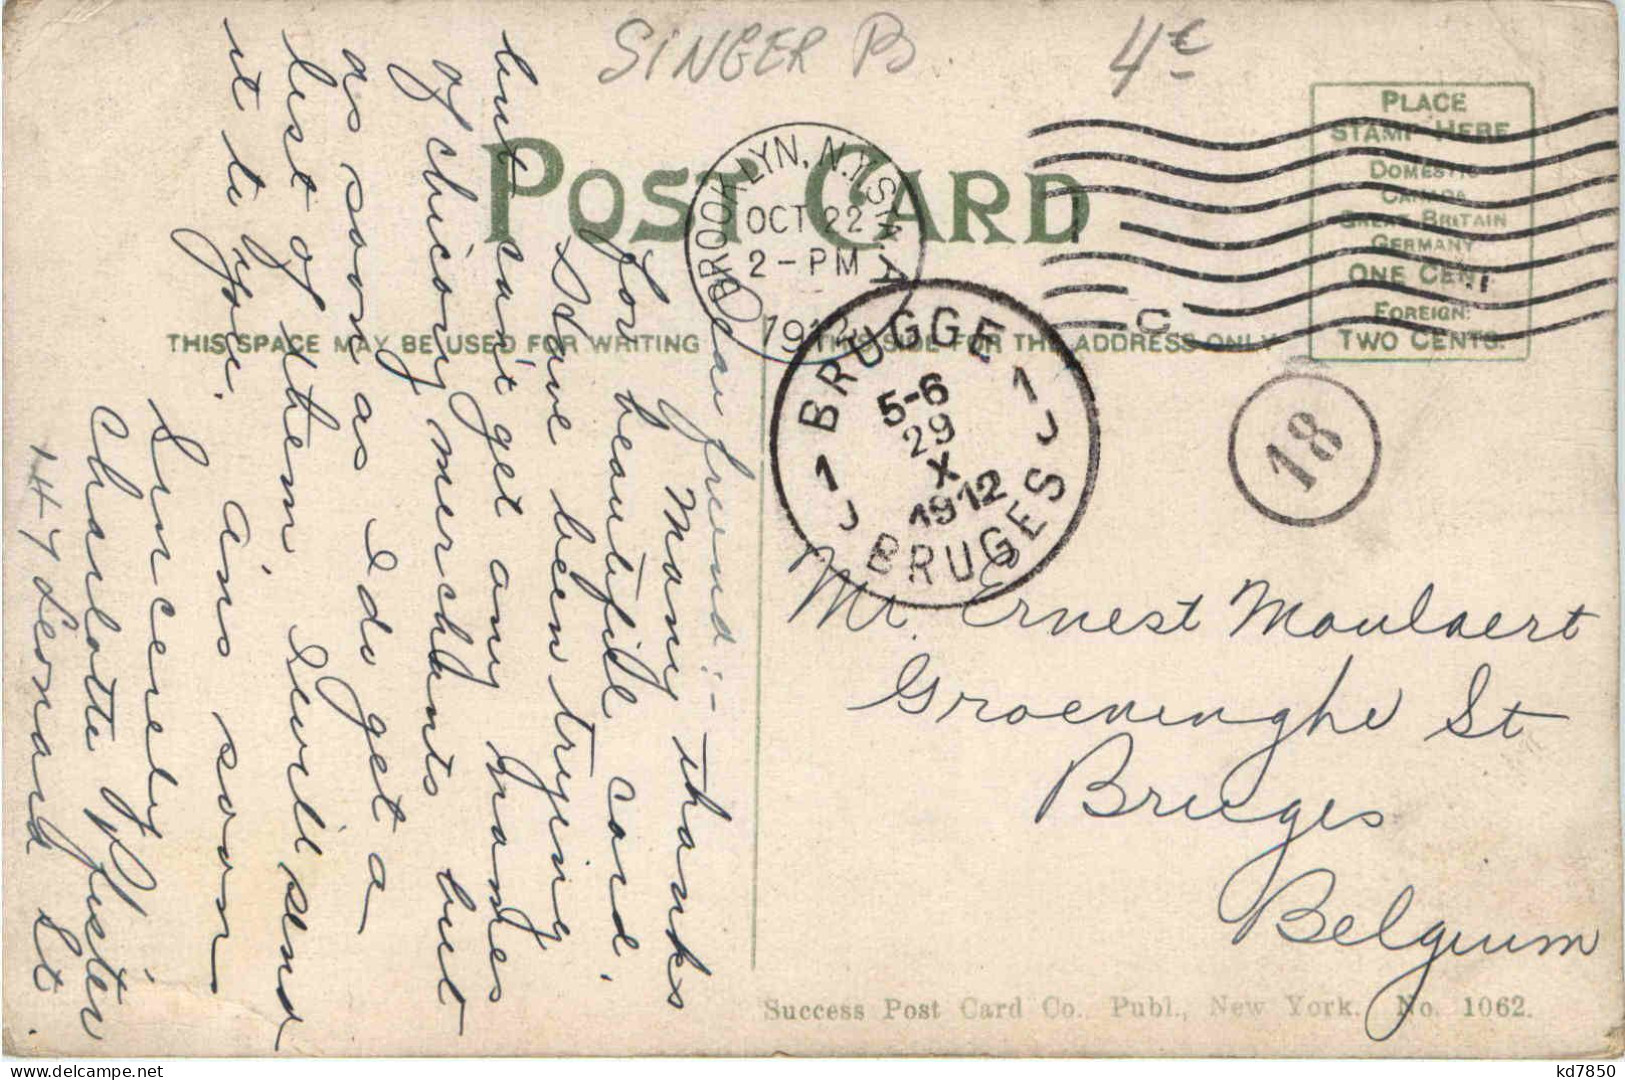 SINGER B.
4c
POST CARD
BROOKLYN, N.Y. STA. A
OCT 22
2-PM
1912
C
PLACE
STAMP HERE
DOMESTIC
CANADA
GREAT BRITAIN
GERMANY
ONE CENT
FOREIGN:
TWO CENTS.
THIS SPACE MAY BE USED FOR WRITING
THIS SIDE FOR THE ADDRESS ONLY
BRUGGE
1 1
5-6
29
X
1912
BRUGES
18
Dear friend:-
Many thanks
for beautiful card.
I have been trying
but can't get any names
of chicory merchants but
as soon as I do get a
list of them, I will send
it to you. Ans soon
Sincerely
Charlotte Pfister
147 Leonard St.
Mr. Ernest Moulaert
Groeninghe St
Bruges
Belgium
Success Post Card Co. Publ., New York. No. 1062.
kd7850